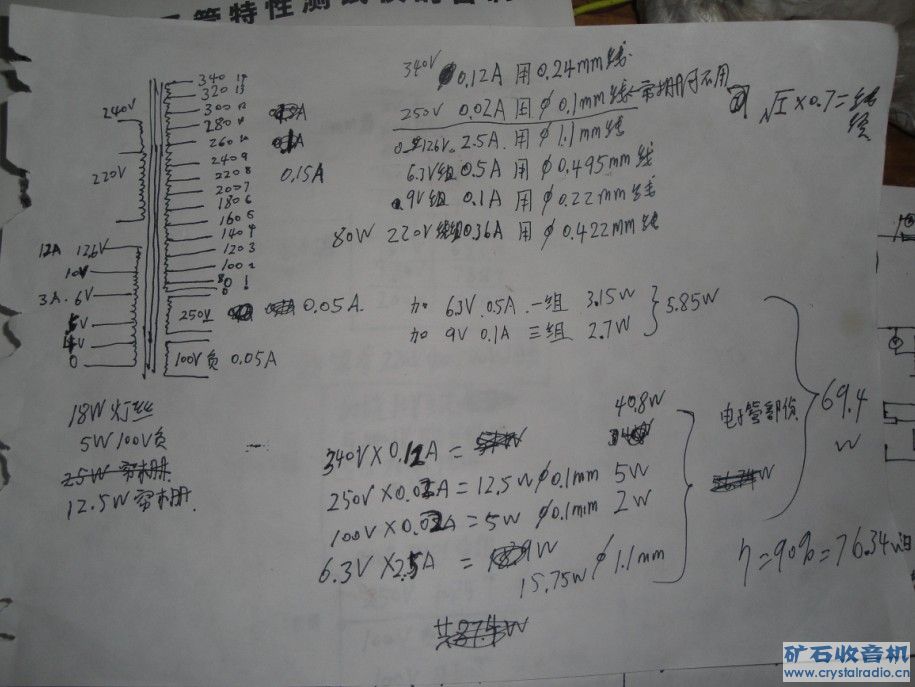 管特性测试仪的
340V 0.12A 用0.24mm线
250V 0.02A 用φ0.1mm线←帘栅可不用
√I×0.7=线径
12.6V 2.5A 用φ1.1mm线
6.3V组 0.5A 用φ0.495mm线
9V组 0.1A 用φ0.22mm线
80W 220V线组0.36A 用φ0.422mm线
240V
220V
340
320 13
300 12
280 11
260 10
240 9
220 8
200 7
180 6
160 5
140 4
120 3
100 2
80 1
0
0.15A
12A 12.6V
10V
3A. 6V
5V
0
250V 0.05A.
100V负 0.05A
加 6.3V 0.5A 一组 3.15W
加 9V 0.1A 三组 2.7W
5.85W
18W灯丝
5W 100V负
25W 帘栅
12.5W 帘栅.
40.8W
340V×0.12A=
250V×0.02A=12.5W φ0.1mm 5W
100V×0.02A=5W φ0.1mm 2W
6.3V×2.5A = 15.75W φ1.1mm
电子管部份
69.4W
η=90%=76.34W
矿石收音机
www.crystalradio.cn